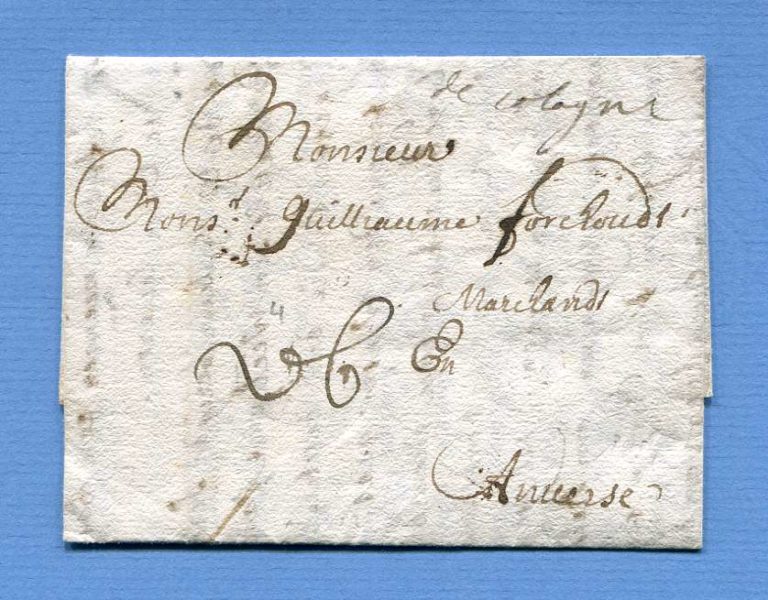 de cologne
Monsieur
Mons.r guilliaume forchoudt
Marchandt
En
Anuerse